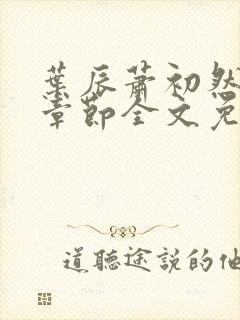 葉辰蕭初然
章節全文免
道聽途說的他